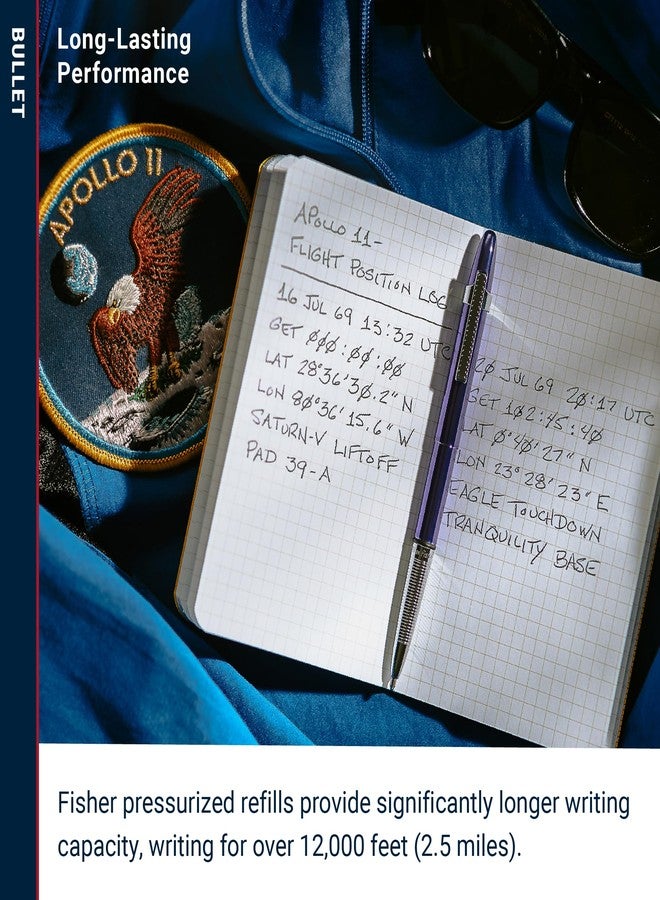 BULLET
Long-Lasting
Performance
APOLLO 11
APOLLO 11-
FLIGHT POSITION LOG
16 JUL 69 13:32 UTC
GET 000:00:00
LAT 28°36'30.2" N
LON 80°36'15.6" W
SATURN-V LIFTOFF
PAD 39-A
20 JUL 69 20:17 UTC
GET 102:45:40
LAT 0°40'27" N
LON 23°28'23" E
EAGLE TOUCHDOWN
TRANQUILITY BASE
Fisher pressurized refills provide significantly longer writing
capacity, writing for over 12,000 feet (2.5 miles).